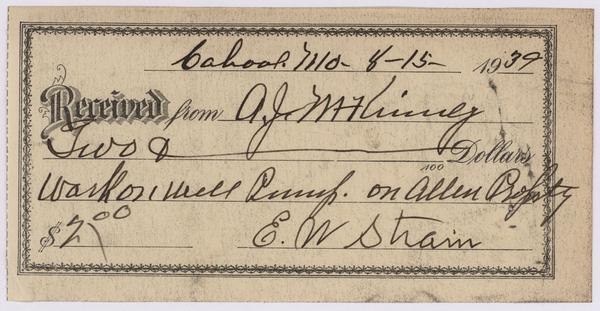 Cabool. Mo- 8-15- 1939
Received from A.J. McKinney
Two & Dollars
100
Work on well Pump. on Allen Propty
$2 00
E. W Strain